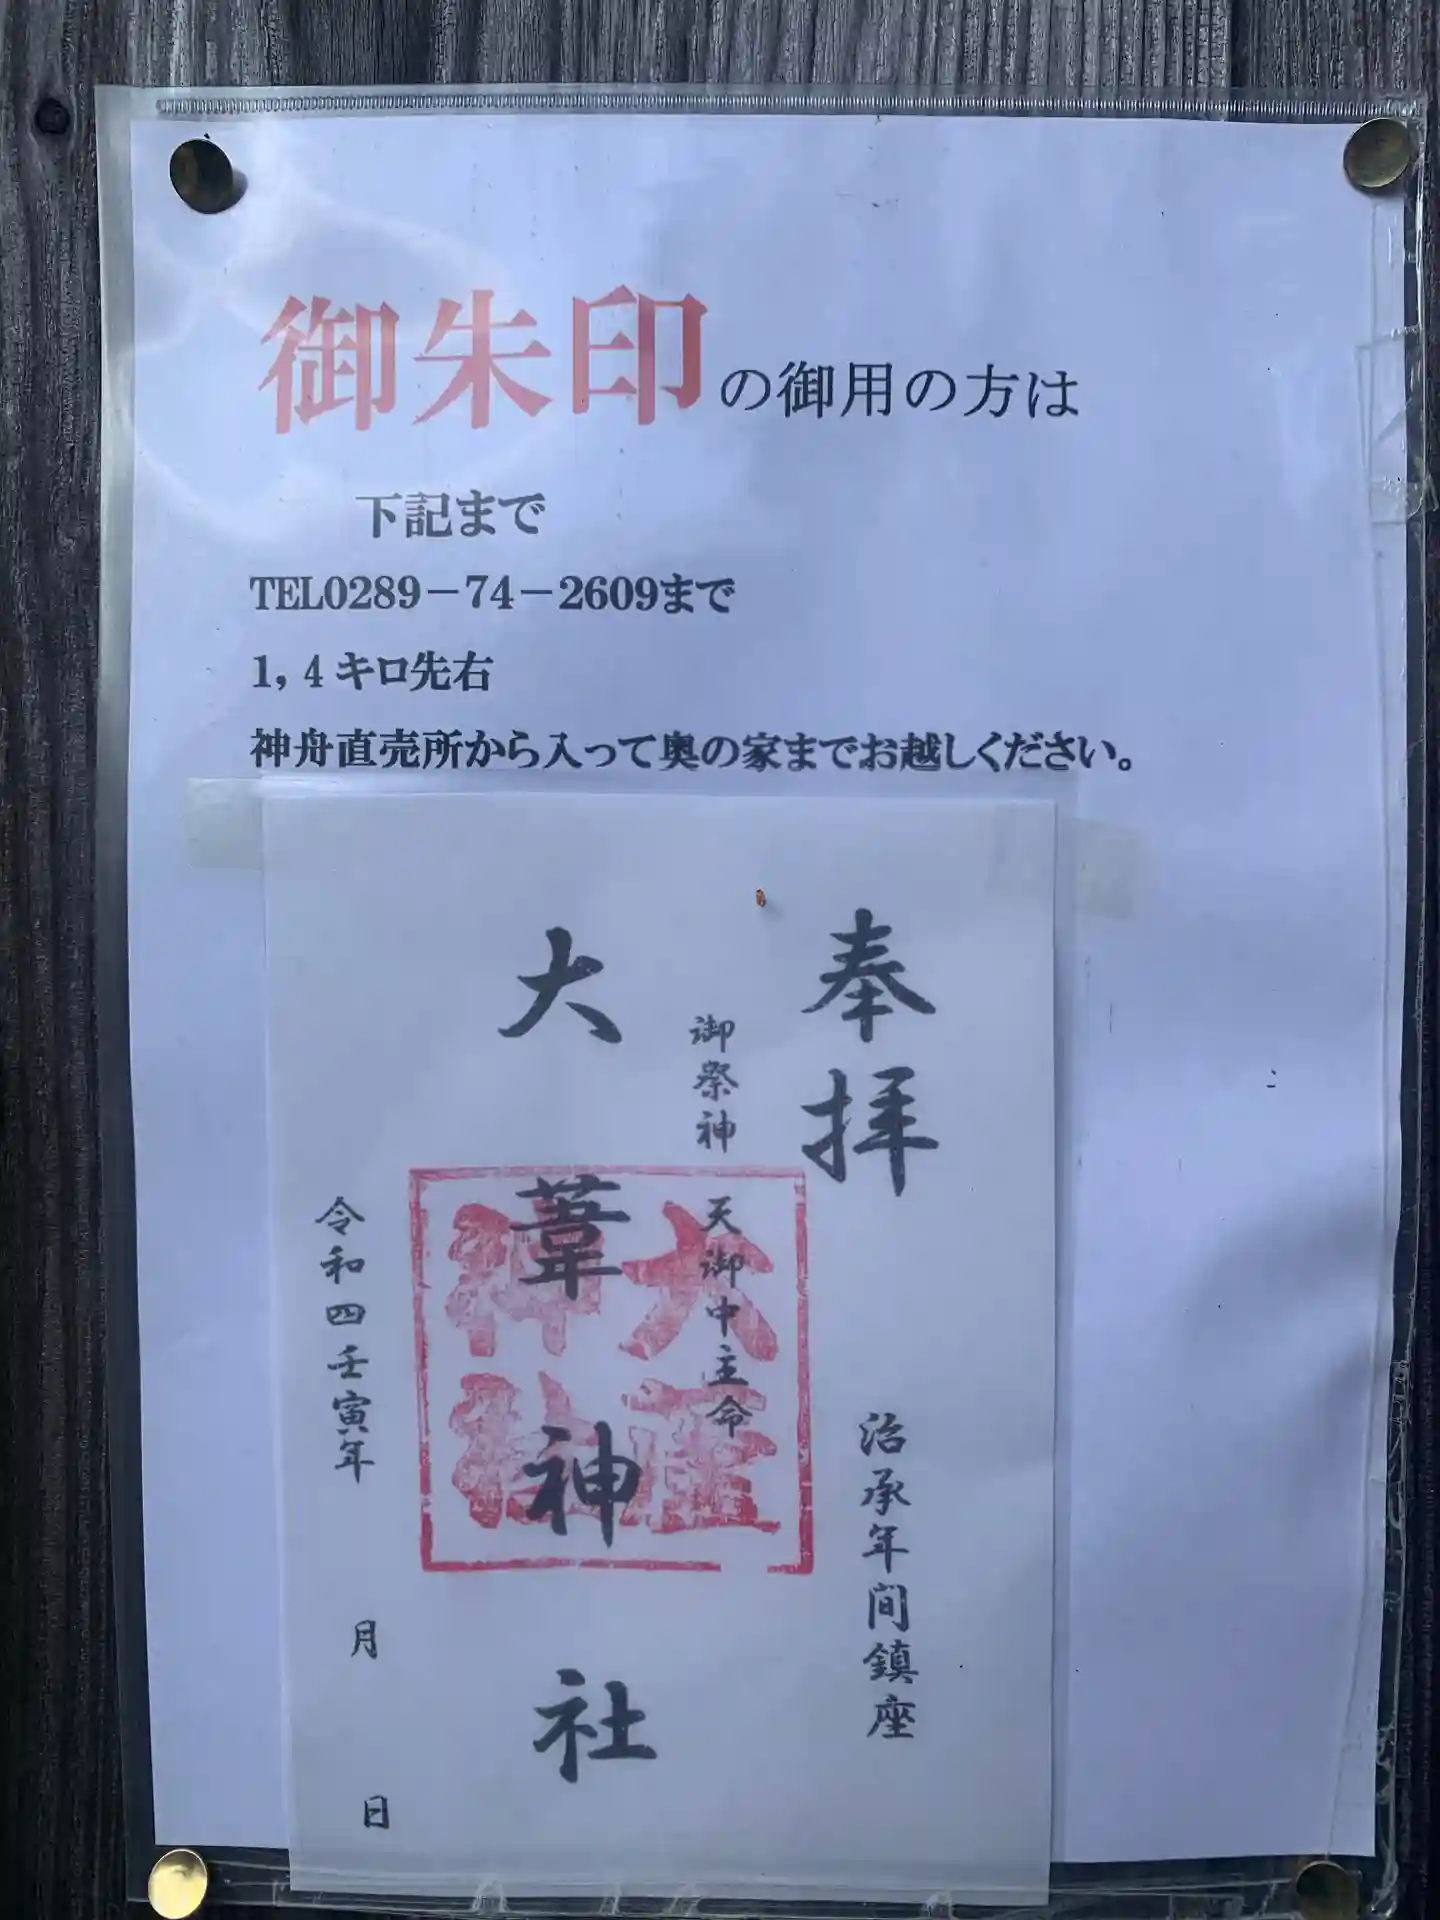 御朱印の御用の方は
下記まで
TEL0289－74－2609まで
1，4キロ先右
神舟直売所から入って奥の家までお越しください。
奉拝
治承年間鎮座
御祭神 天御中主命
大葦神社
大葦神社
令和四壬寅年 月 日